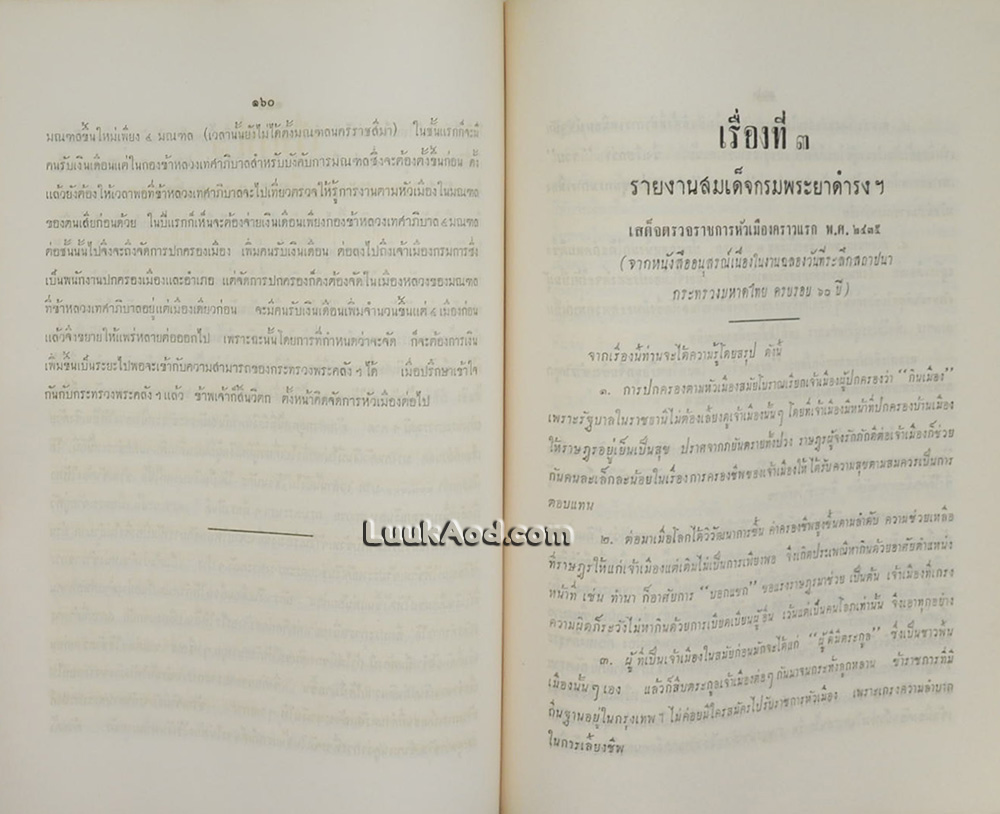 ๑๖๐
มณฑลขึ้นใหม่เพียง ๔ มณฑล (เวลานั้นยังไม่ได้ตั้งมณฑลนครราชสีมา) ในชั้นแรกก็จะมี
คนรับเงินเดือนแต่ในกองข้าหลวงเทศาภิบาลสำหรับบังคับการมณฑลซึ่งจะต้องตั้งขึ้นก่อน ตั้ง
แล้วยังต้องให้เวลาพอที่ข้าหลวงเทศาภิบาลจะไปเที่ยวตรวจให้รู้การงานตามหัวเมืองในมณฑล
ของตนเสียก่อนด้วย ในปีแรกก็เห็นจะต้องจ่ายเงินเดือนเพียงกองข้าหลวงเทศาภิบาล ๔ มณฑล
ต่อชั้นนั้นไปจึงจะถึงจัดการปกครองเมือง เพิ่มคนรับเงินเดือน ต่อลงไปถึงเจ้าเมืองกรมการซึ่ง
เป็นพนักงานปกครองเมืองและอำเภอ แต่จัดการปกครองก็คงต้องจัดในเมืองหลวงของมณฑล
ที่ข้าหลวงเทศาภิบาลอยู่แต่เมืองเดียวก่อน จะมีคนรับเงินเดือนเพิ่มจำนวนขึ้นแต่ ๔ เมืองก่อน
แล้วจึงขยายให้แพร่หลายต่อออกไป เพราะฉะนั้นโดยการที่กำหนดว่าจะจัด ก็จะต้องการเงิน
เพิ่มขึ้นเป็นระยะไปพอจะเข้ากับความสามารถของกระทรวงพระคลัง ฯ ได้ เมื่อปรึกษาเข้าใจ
กันกับกระทรวงพระคลัง ฯ แล้ว ข้าพเจ้าก็สิ้นวิตก ตั้งหน้าคิดจัดการหัวเมืองต่อไป
LuukAod.com
เรื่องที่ ๓
รายงานสมเด็จกรมพระยาดำรง ฯ
เสด็จตรวจราชการหัวเมืองคราวแรก พ.ศ. ๒๔๓๕
(จากหนังสืออนุสรณ์เนื่องในงานฉลองวันที่ระลึกสถาปนา
กระทรวงมหาดไทย ครบรอบ ๖๐ ปี)
จากเรื่องนี้ท่านจะได้ความรู้โดยสรุป ดังนี้
๑. การปกครองตามหัวเมืองสมัยโบราณเรียกเจ้าเมืองผู้ปกครองว่า “กินเมือง”
เพราะรัฐบาลในราชธานีไม่ต้องเลี้ยงดูเจ้าเมืองนั้น ๆ โดยที่เจ้าเมืองมีหน้าที่ปกครองบ้านเมือง
ให้ราษฎรอยู่เย็นเป็นสุข ปราศจากภยันตรายทั้งปวง ราษฎรผู้จงรักภักดีต่อเจ้าเมืองก็ช่วย
กันคนละเล็กละน้อยในเรื่องการครองชีพของเจ้าเมืองให้ได้รับความสุขตามสมควรเป็นการ
ตอบแทน
๒. ต่อมาเมื่อโลกได้วิวัฒนาการขึ้น ค่าครองชีพสูงขึ้นตามลำดับ ความช่วยเหลือ
ที่ราษฎรให้แก่เจ้าเมืองแต่เดิมไม่เป็นการเพียงพอ จึงเกิดประเพณีหากินด้วยอาศัยตำแหน่ง
หน้าที่ เช่น ทำนา ก็อาศัยการ “บอกแขก” ขอแรงราษฎรมาช่วย เป็นต้น เจ้าเมืองที่เกรง
ความผิดก็ระวังไม่หากินด้วยการเบียดเบียนผู้อื่น เว้นแต่เป็นคนโลภเท่านั้น จึงเอาทุกอย่าง
๓. ผู้ที่เป็นเจ้าเมืองในสมัยก่อนมักจะได้แก่ “ผู้ดีมีตระกูล” ซึ่งเป็นชาวพื้น
เมืองนั้น ๆ เอง แล้วก็สืบตระกูลเจ้าเมืองต่อๆ กันมาจนกระทั่งลูกหลาน ข้าราชการที่มี
ถิ่นฐานอยู่ในกรุงเทพ ฯ ไม่ค่อยมีใครสมัครไปรับราชการหัวเมือง เพราะเกรงความลำบาก
ในการเลี้ยงชีพ